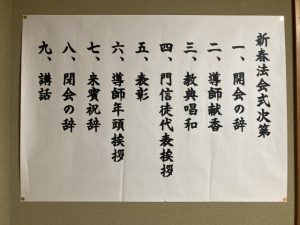 新春法会式次第
一、開会の辞
二、導師献香
三、教典唱和
四、門信徒代表挨拶
五、表彰
六、導師年頭挨拶
七、来賓祝辞
八、閉会の辞
九、講話